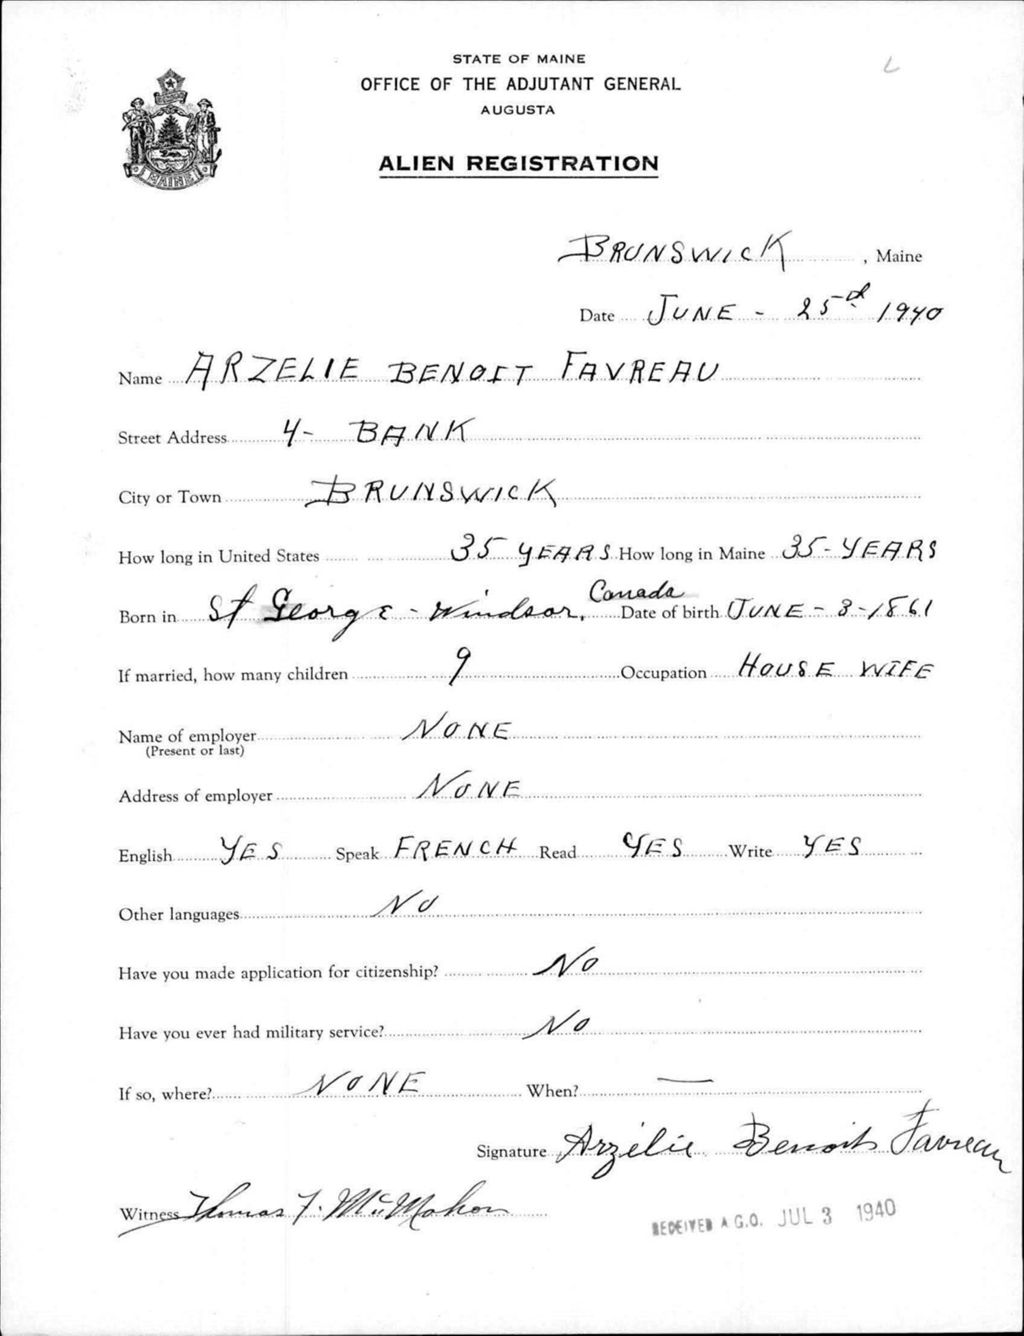 STATE OF MAINE
OFFICE OF THE ADJUTANT GENERAL
AUGUSTA
ALIEN REGISTRATION
MAINE
BRUNSWICK, Maine
Date JUNE - 25d 1940
Name ARZELIE BENOIT FAVREAU
Street Address 4- BANK
City or Town BRUNSWICK
How long in United States 35 YEARS How long in Maine 35- YEARS
Born in St George - Windsor, Canada Date of birth JUNE - 3-1861
If married, how many children 9 Occupation HOUSE WIFE
Name of employer NONE
(Present or last)
Address of employer NONE
English YES Speak FRENCH Read YES Write YES
Other languages NO
Have you made application for citizenship? No
Have you ever had military service? No
If so, where? NONE When? —
Signature Arzelie Benoit Favreau
Witness Thomas F. McMahon
RECEIVED A.G.O. JUL 3 1940